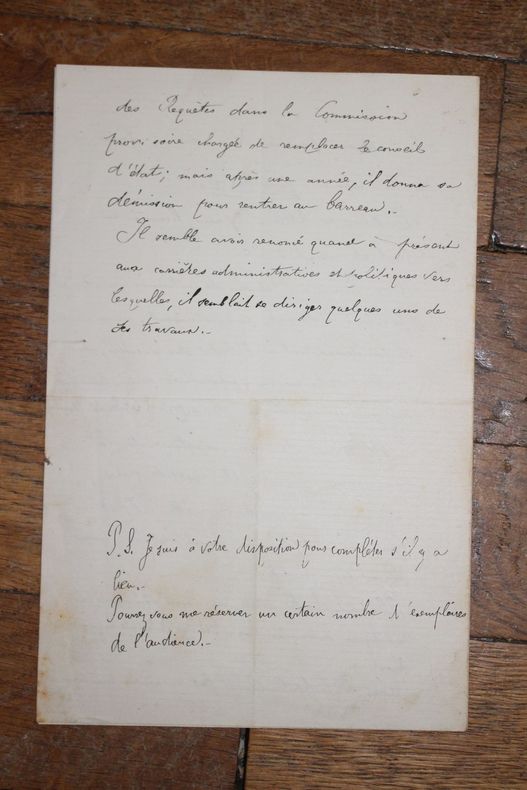 des Requêtes dans la Commission
provisoire chargée de remplacer le conseil
d'état; mais après une année, il donna sa
démission pour rentrer au barreau.-
Il semble avoir renoncé quand à présent
aux carrières administratives et politiques vers
lesquelles, il semblait se diriger quelques uns de
ses travaux.-
P.S. Je suis à votre disposition pour compléter s'il y a
lieu.-
Pouvez vous me réserver un certain nombre d'exemplaires
de l'audience.-